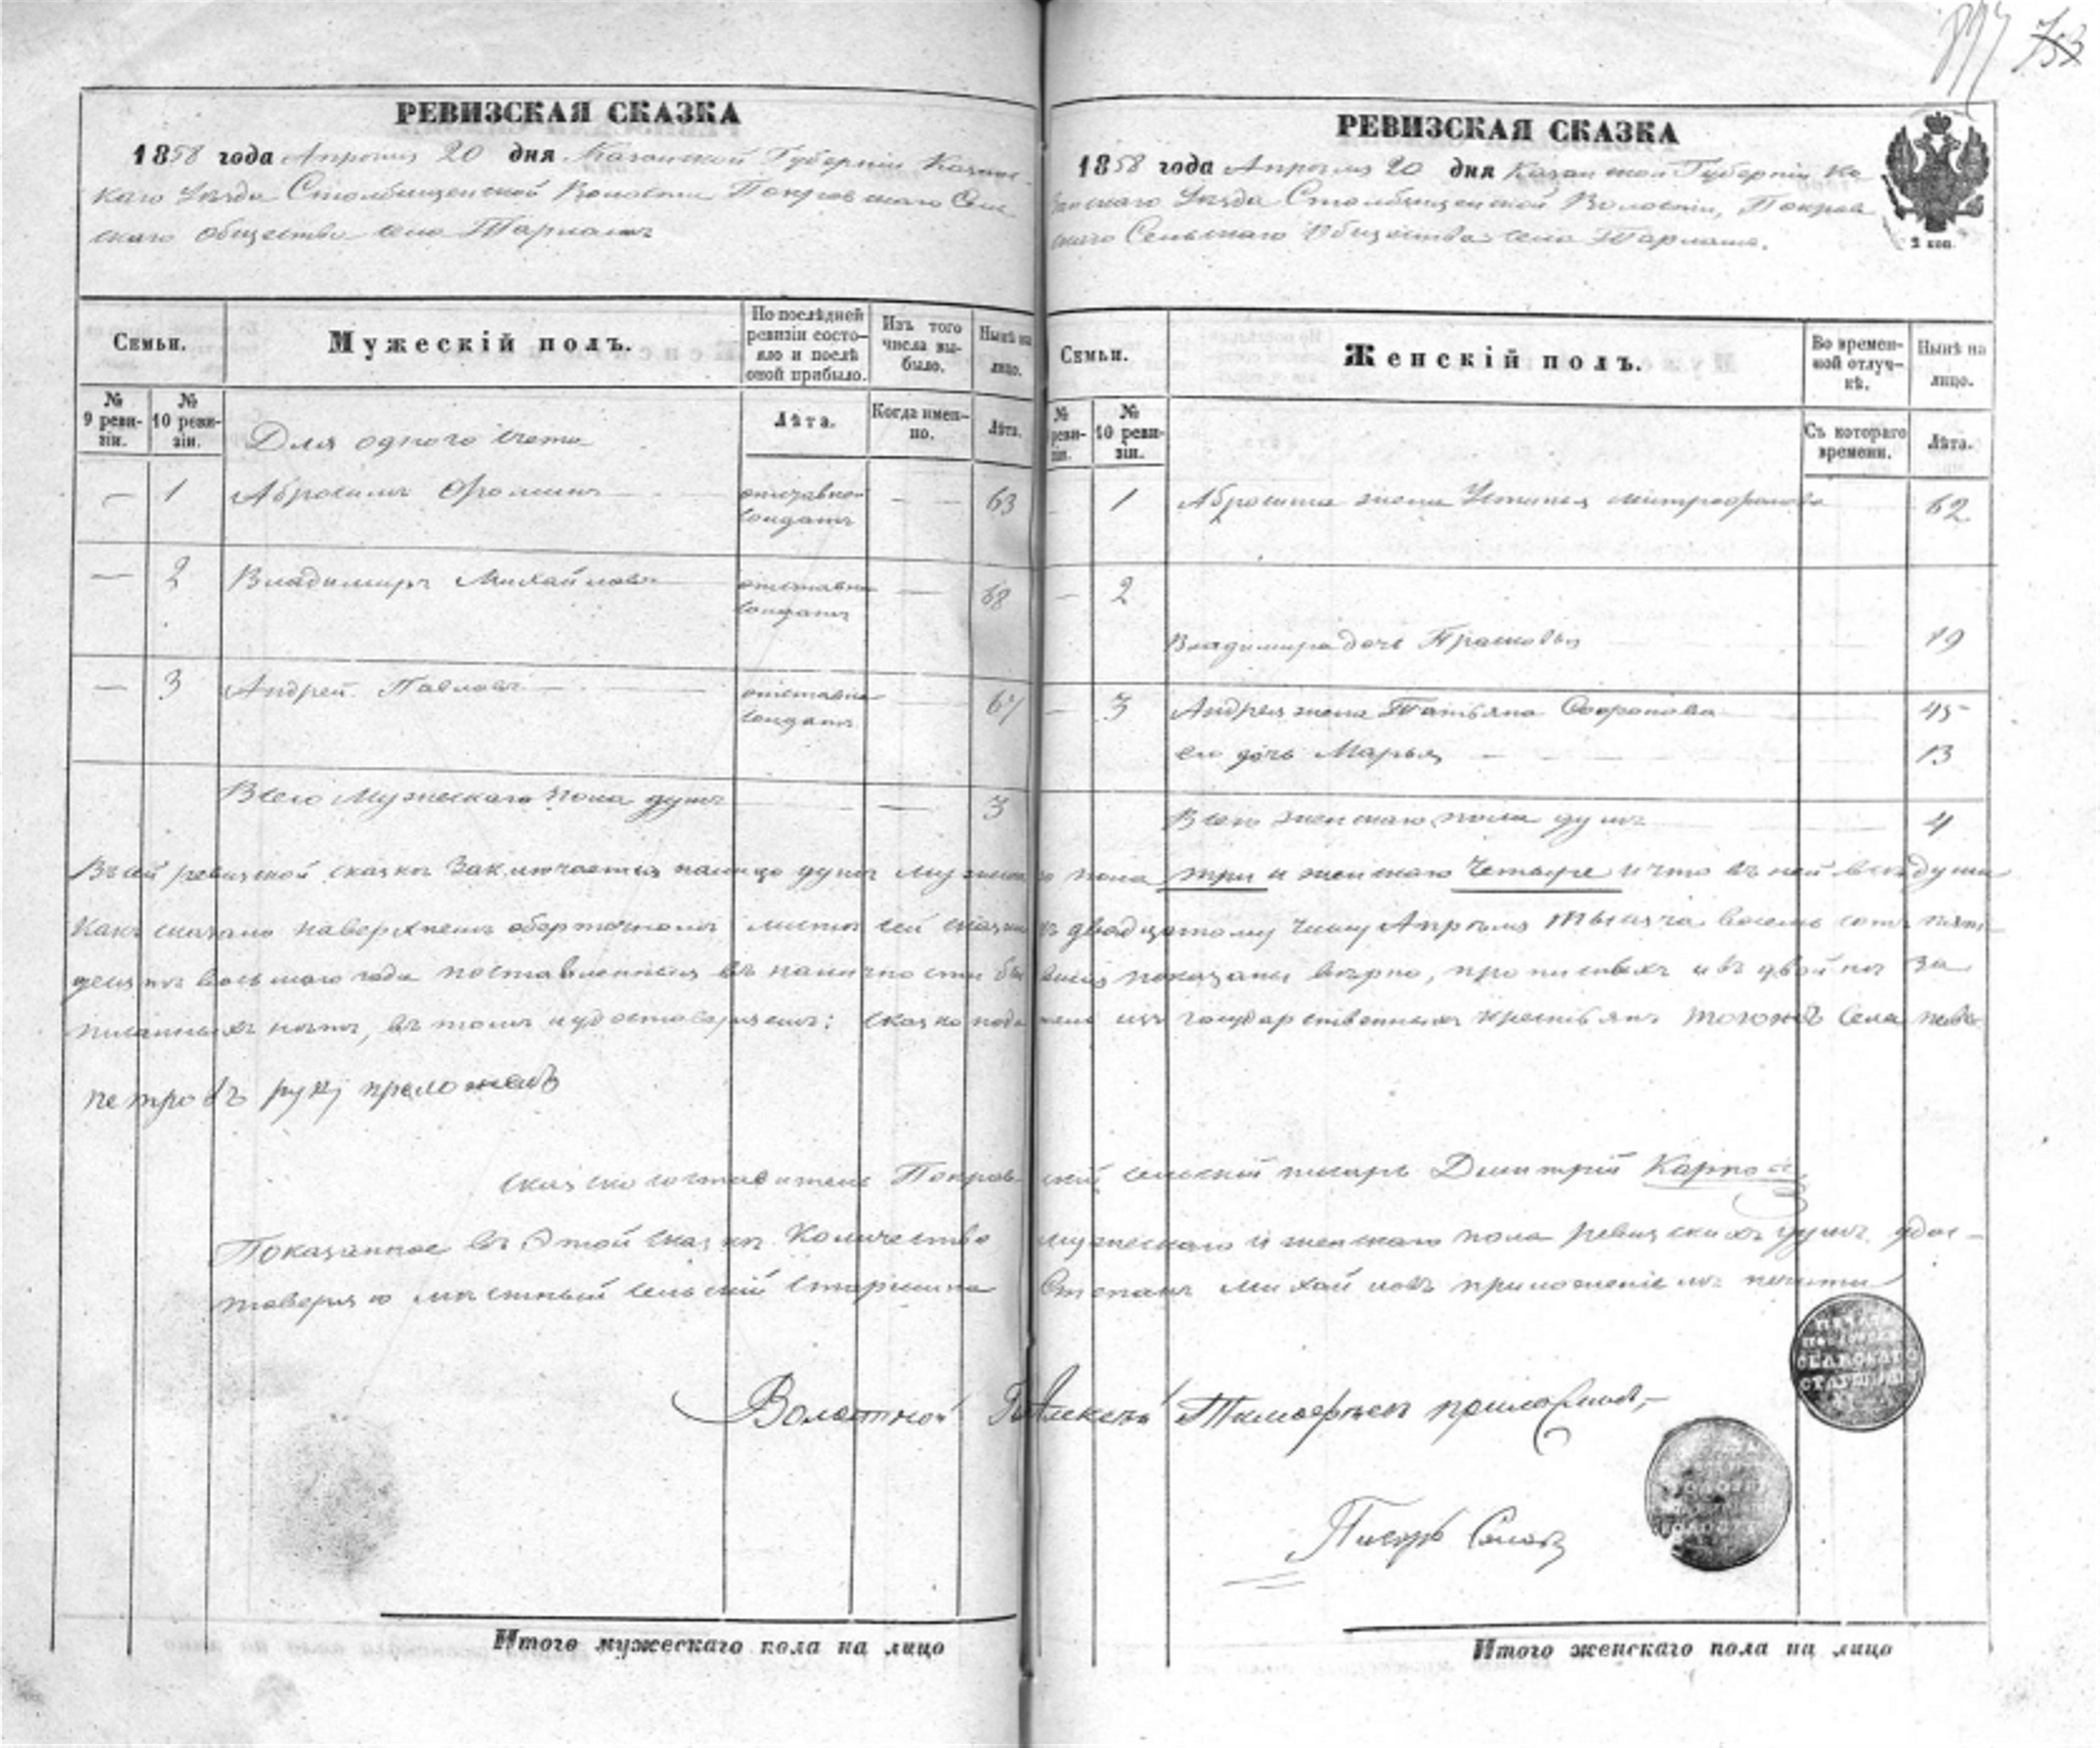 РЕВИЗСКАЯ СКАЗКА
1858 года Апрѣля 20 дня Казанской Губерніи Казанс-
каго Уѣзда Столбищенской Волости Покровскаго Сель
скаго общества села Тарлаш
Семьи.
Мужескій полъ.
По послѣдней ревизіи состо-яло и послѣ оной прибыло.
Изъ того числа вы-было.
Нынѣ на лицо.
№ 9 реви-зіи.
№ 10 реви-зіи.
Для одного счета
Лѣта.
Когда имен-но.
Лѣта.
— 1 Абросимъ Фроминъ отставной солдатъ — 63
— 2 Владимиръ Михайловъ отставной солдатъ — 68
— 3 Андрей Павловъ отставной солдатъ 67
Всего Мужескаго пола душъ — 3
РЕВИЗСКАЯ СКАЗКА
1858 года Апрѣля 20 дня Казанской Губерніи Ка
занскаго Уѣзда Столбищенской Волости, Покров
скаго Сельскаго Общества села Тарлаша.
2 коп
Семьи.
Женскій полъ.
Во времен-ной отлуч-кѣ.
Нынѣ на лицо.
№ реви-зіи.
№ 10 реви-зіи.
Съ котораго времени.
Лѣта.
1 Абросима жена Устинья митрофанова 62
— 2
Владимира дочь Прасковья 19
— 3 Андрея жена Татьяна Софронова 45
его дочь Марья — 13
Всего женскаго пола душъ 4
Въ сей ревизской сказкѣ Заключается налицо душъ мужескаго пола три и женскаго Четыре и что въ ней всѣ души
Какъ сказано наверхнемъ оберточномъ листѣ сей сказки къ двадцатому числу Апрѣля тысяча восемь сотъ пять
десятъ восьмаго года поставленныя въ наличности показаны вѣрно, прописныхъ и въ двойнѣ за
писанныхъ нѣтъ, въ томъ и удостовѣряемъ: сказко податель изъ государственныхъ крестьянъ тогожъ Села
петровъ руку преложелъ
сказкосоставитель Покровскій сельскій писарь Дмитрій Карпов
Показанное въ этой сказкѣ Количество мужескаго и женскаго пола ревизскихъ душъ удос-
товеряю мѣстный сельскій старшина Степанъ Михайловъ приложеніемъ печати
ПЕЧАТЬ
СЕЛЬСКАГО
СТАРШИНЫ
Волостной Алексѣй Тимофѣевъ приложилъ
Писарь
Итого мужескаго пола на лицо
Итого женскаго пола на лицо